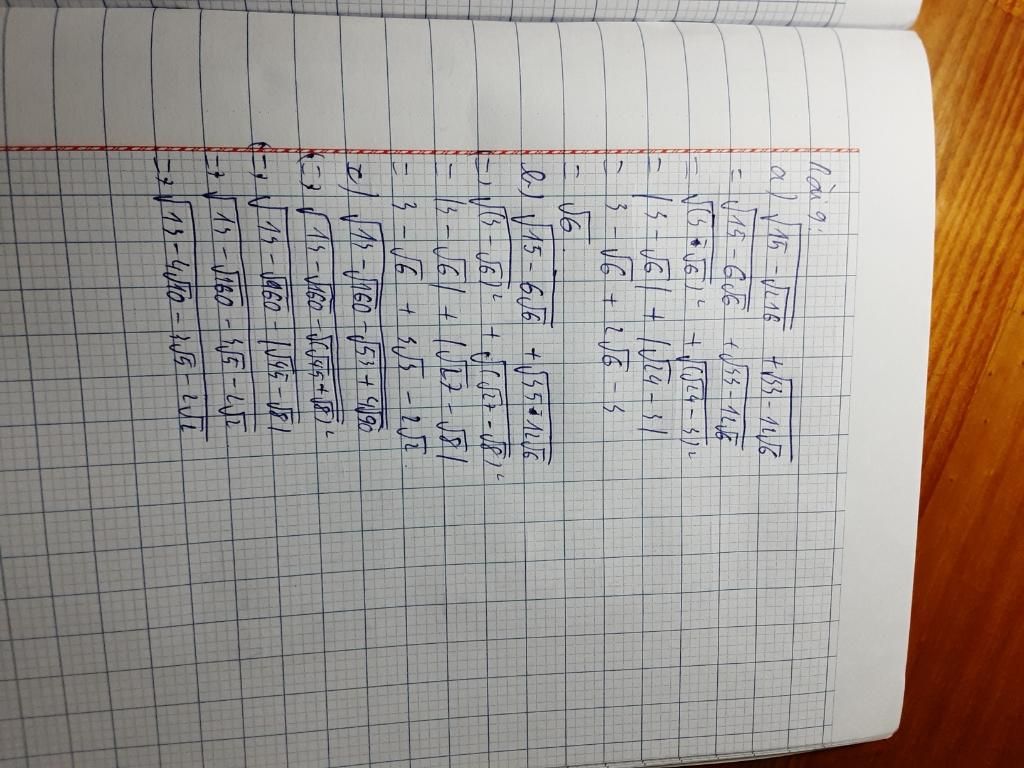 Bài 9:
a) √(15 - √216) + √(33 - 12√6)
= √(15 - 6√6) + √(33 - 12√6)
= √(3 - √6)² + √(√24 - 3)²
= |3 - √6| + |√24 - 3|
= 3 - √6 + 2√6 - 3
= √6
b) √(15 - 6√6) + √(35 - 12√6)
= √(3 - √6)² + √(√27 - √8)²
= |3 - √6| + |√27 - √8|
= 3 - √6 + 3√3 - 2√2
c) √(13 - √160 - √(53 + 4√90))
(=) √(13 - √160 - √(√45 + √8)²)
(=) √(13 - √160 - |√45 - √8|)
=> √(13 - √160 - 3√5 - 2√2)
=> √(13 - 4√10 - 3√5 - 2√2)